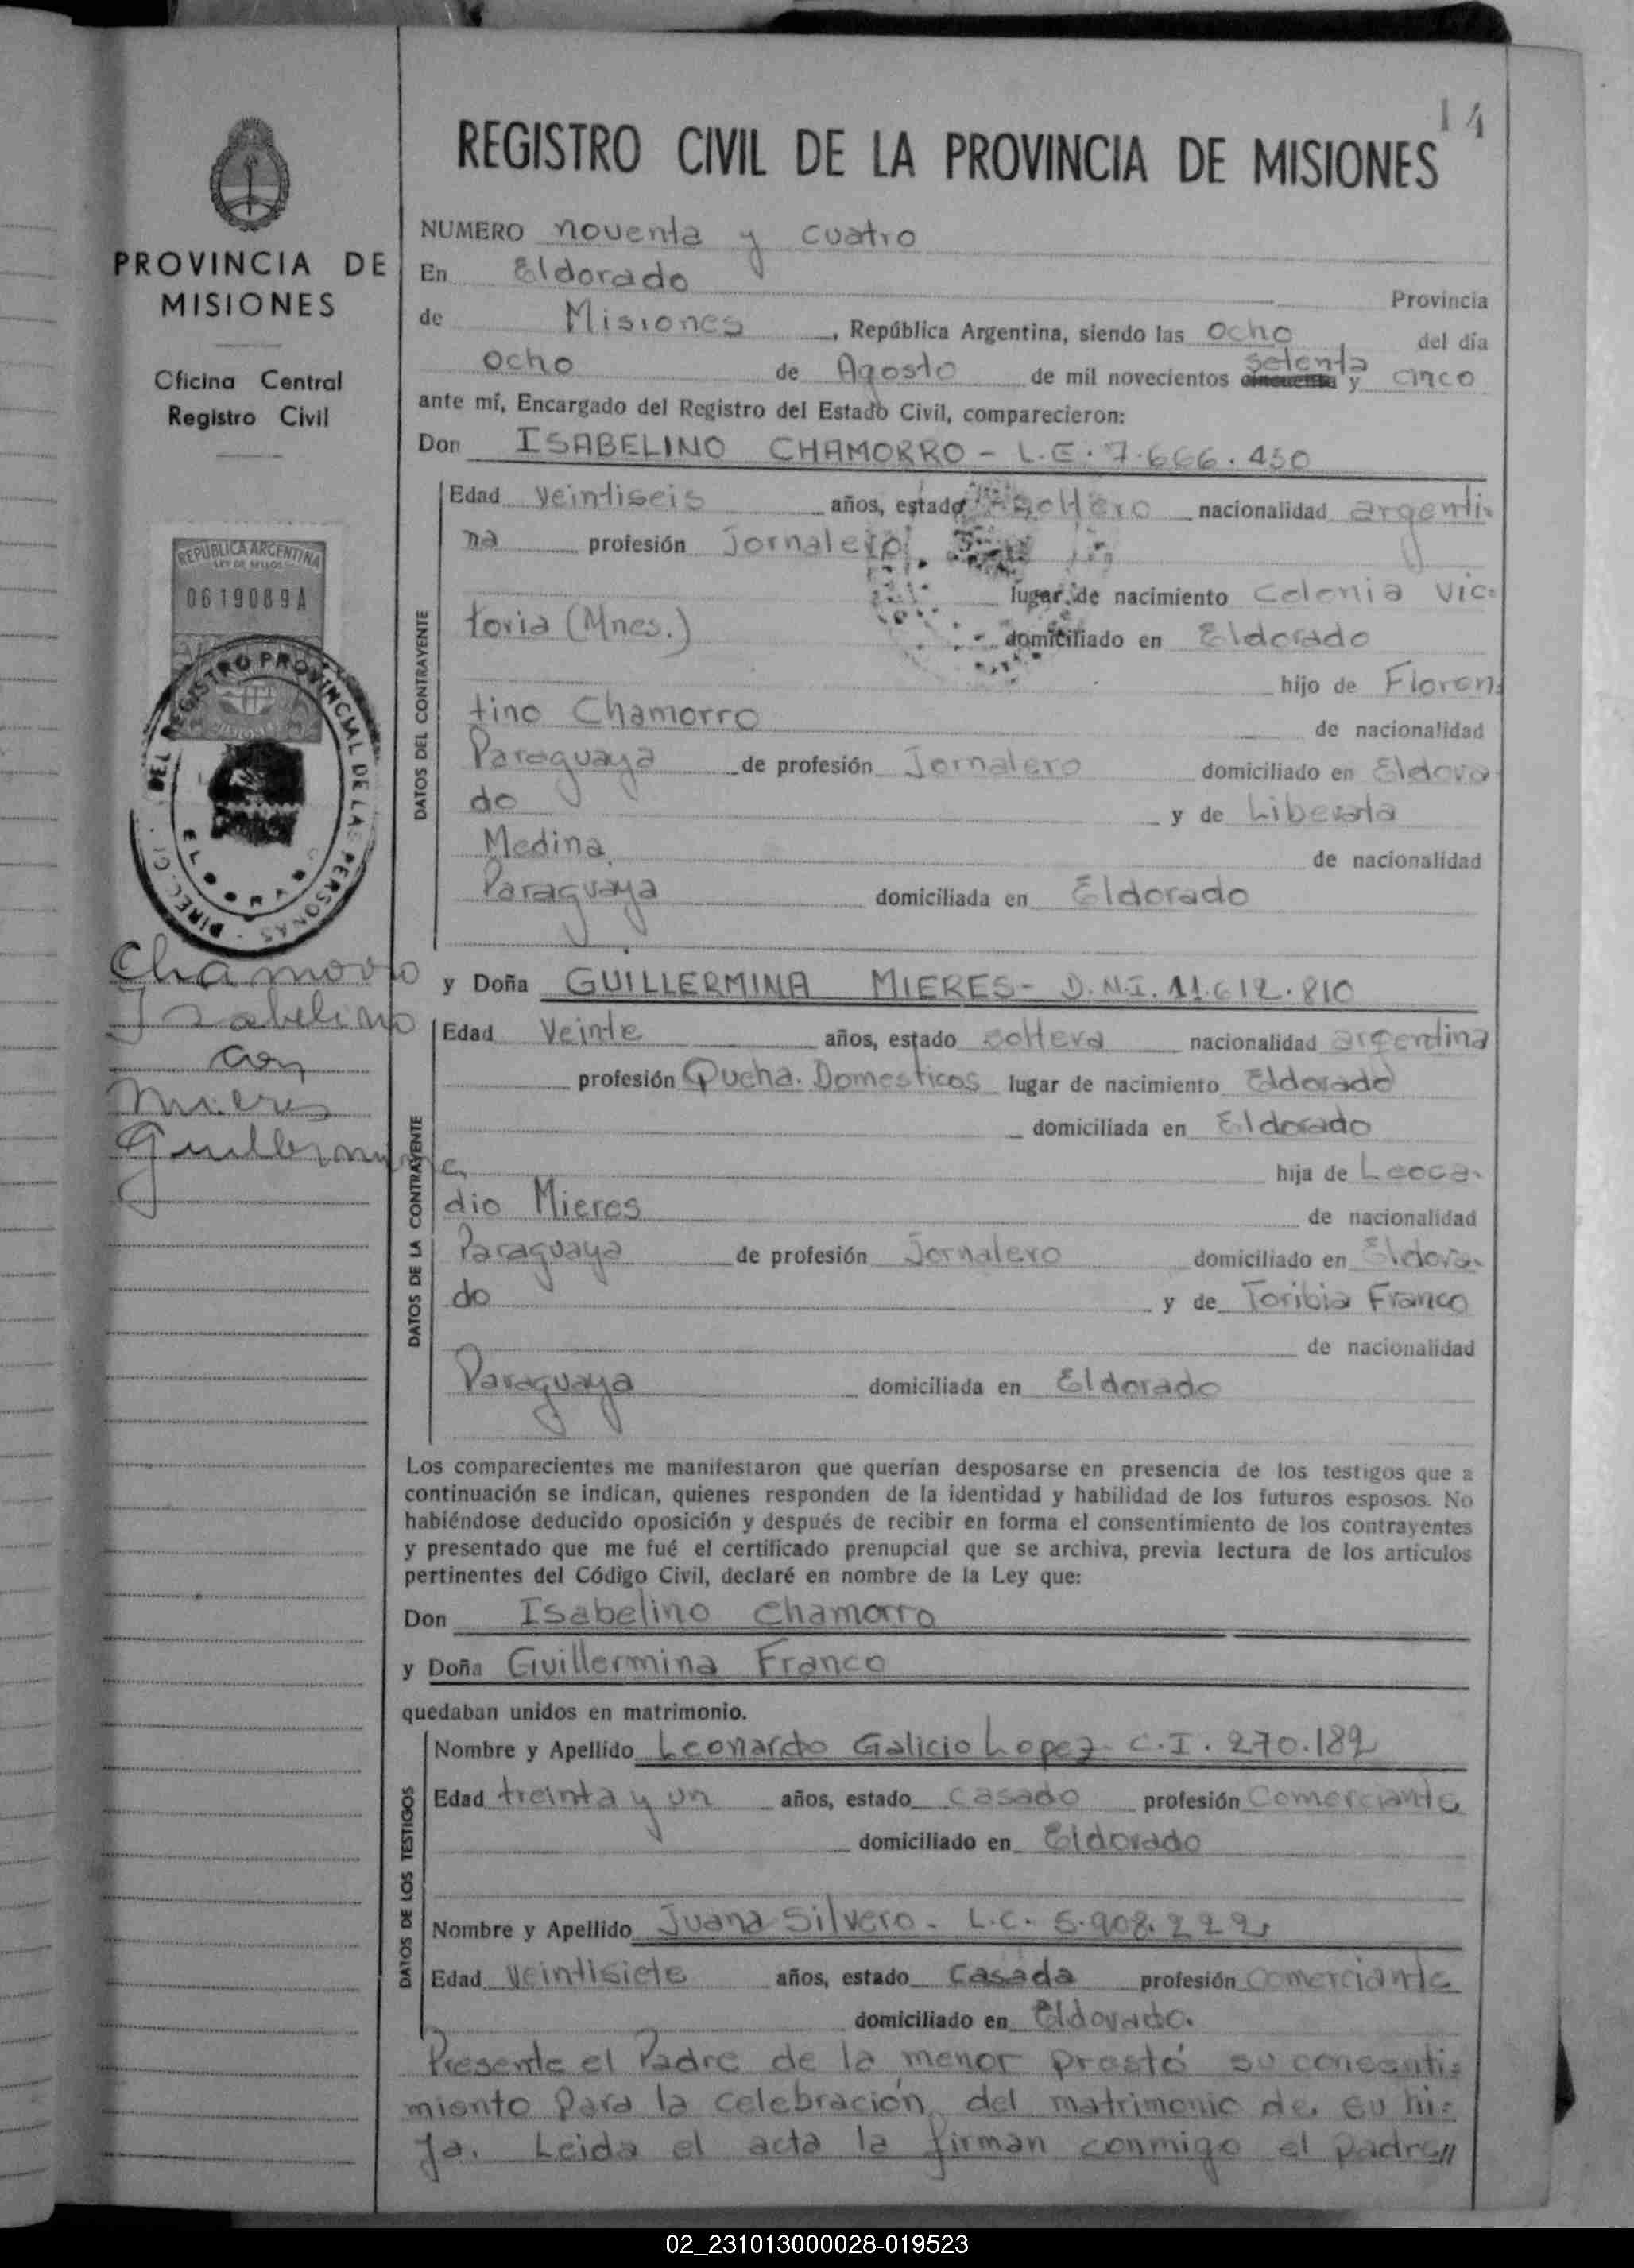 14
REGISTRO CIVIL DE LA PROVINCIA DE MISIONES
PROVINCIA DE
MISIONES
Oficina Central
Registro Civil
REPUBLICA ARGENTINA
LEY DE SELLOS
0619089A
DIREC. Gl. DEL REGISTRO PROVINCIAL DE LAS PERSONAS
Chamorro
Isabelino
con
Mieres
Guillermina
NUMERO noventa y cuatro
En Eldorado Provincia
de Misiones, República Argentina, siendo las ocho del día
ocho de Agosto de mil novecientos setenta y cinco
ante mí, Encargado del Registro del Estado Civil, comparecieron:
Don ISABELINO CHAMORRO - L.E. 7.666.450
DATOS DEL CONTRAYENTE
Edad veintiseis años, estado soltero nacionalidad argenti-
na profesión Jornalero
lugar de nacimiento Colonia Vic-
toria (Mnes.) domiciliado en Eldorado
hijo de Floren-
tino Chamorro de nacionalidad
Paraguaya de profesión Jornalero domiciliado en Eldora-
do y de Liberata
Medina de nacionalidad
Paraguaya domiciliada en Eldorado
y Doña GUILLERMINA MIERES- D.N.I. 11.612.810
DATOS DE LA CONTRAYENTE
Edad Veinte años, estado soltera nacionalidad argentina
profesión Qucha. Domesticos lugar de nacimiento Eldorado
domiciliada en Eldorado
hija de Leoca-
dio Mieres de nacionalidad
Paraguaya de profesión Jornalero domiciliado en Eldora-
do y de Toribia Franco
de nacionalidad
Paraguaya domiciliada en Eldorado
Los comparecientes me manifestaron que querían desposarse en presencia de los testigos que a
continuación se indican, quienes responden de la identidad y habilidad de los futuros esposos. No
habiéndose deducido oposición y después de recibir en forma el consentimiento de los contrayentes
y presentado que me fué el certificado prenupcial que se archiva, previa lectura de los artículos
pertinentes del Código Civil, declaré en nombre de la Ley que:
Don Isabelino Chamorro
y Doña Guillermina Franco
quedaban unidos en matrimonio.
DATOS DE LOS TESTIGOS
Nombre y Apellido Leonardo Galicio Lopez- C.I. 270.182
Edad treinta y un años, estado casado profesión Comerciante
domiciliado en Eldorado
Nombre y Apellido Juana Silvero - L.C. 5.908.222
Edad veintisiete años, estado casada profesión comerciante
domiciliado en Eldorado.
Presente el Padre de la menor prestó su consenti=
miento para la celebración del matrimonio de su hi=
ja. Leida el acta la firman conmigo el padre//
02_231013000028-019523